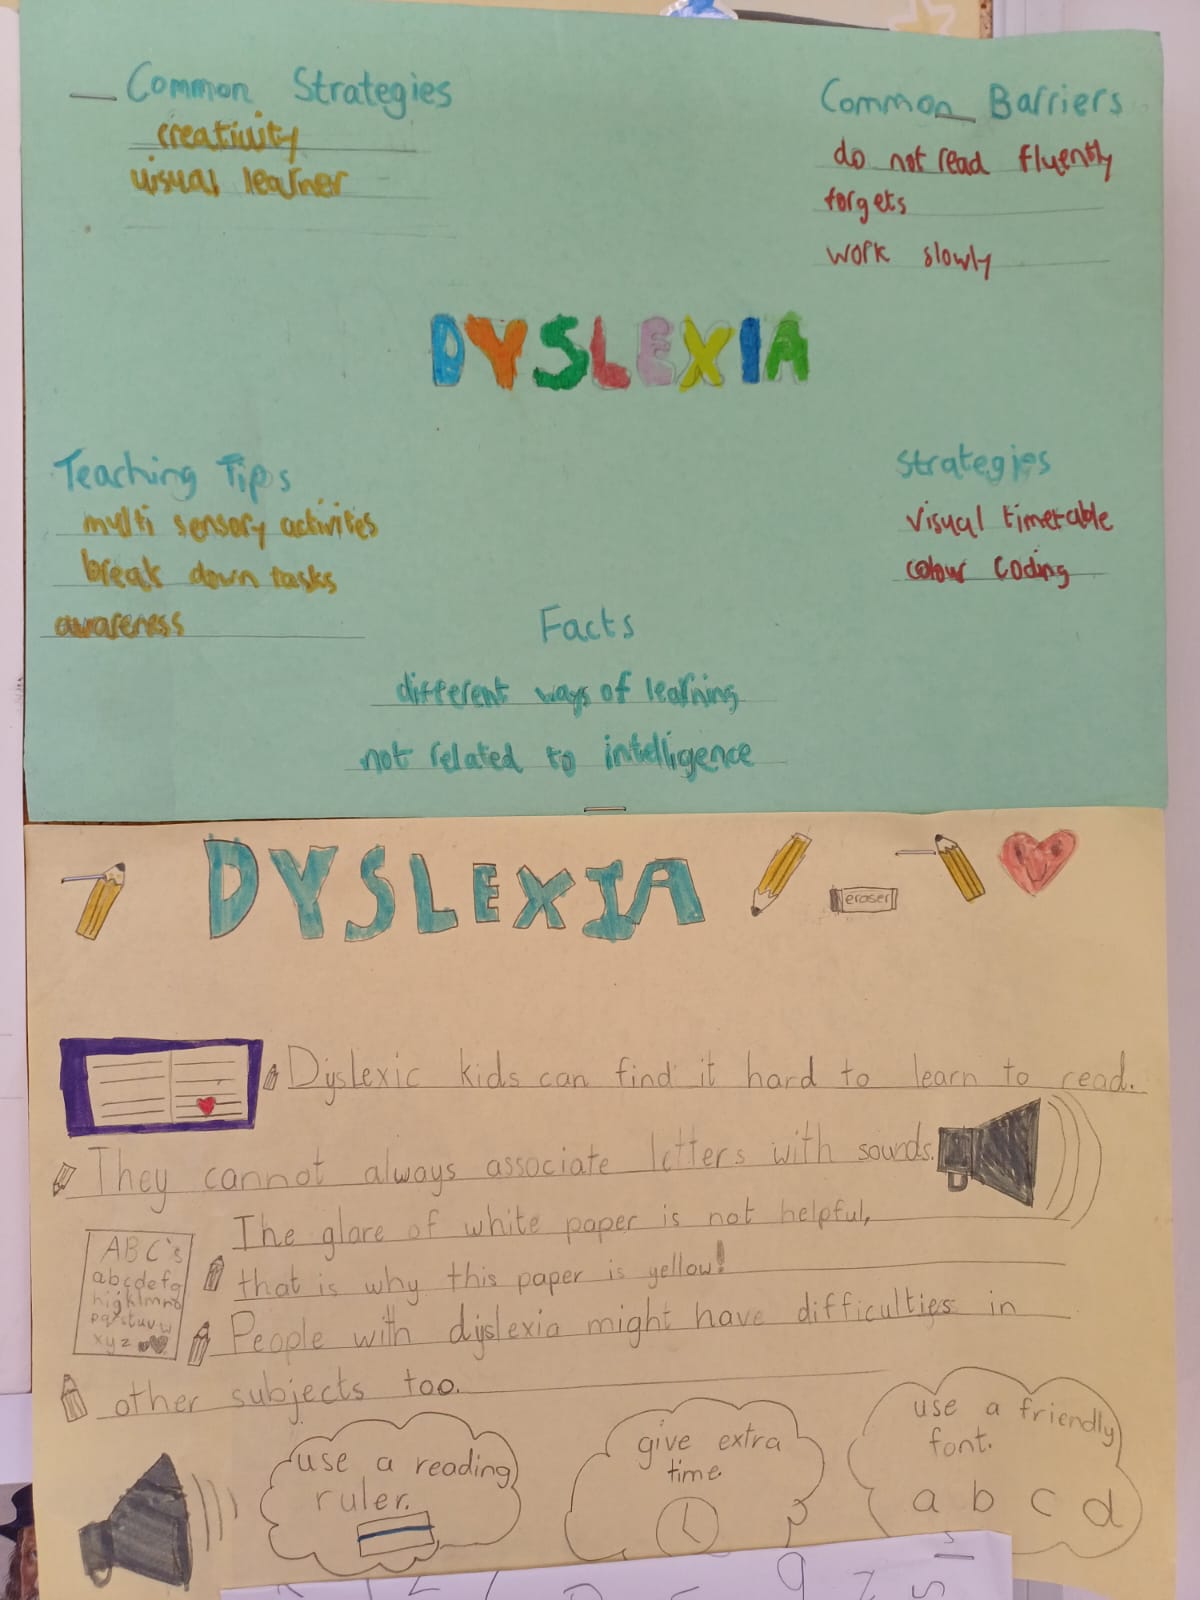 Common Strategies
creativity
visual learner
Common Barriers
do not read fluently
forgets
work slowly
DYSLEXIA
Teaching Tips
multi sensory activities
break down tasks
awareness
Strategies
visual timetable
colour coding
Facts
different ways of learning
not related to intelligence
DYSLEXIA
eraser
Dyslexic kids can find it hard to learn to read.
They cannot always associate letters with sounds.
The glare of white paper is not helpful,
that is why this paper is yellow!
ABC's
abcdefg
hijklmno
pqrstuvw
xyz
People with dyslexia might have difficulties in
other subjects too.
use a reading
ruler.
give extra
time
use a friendly
font.
a b c d